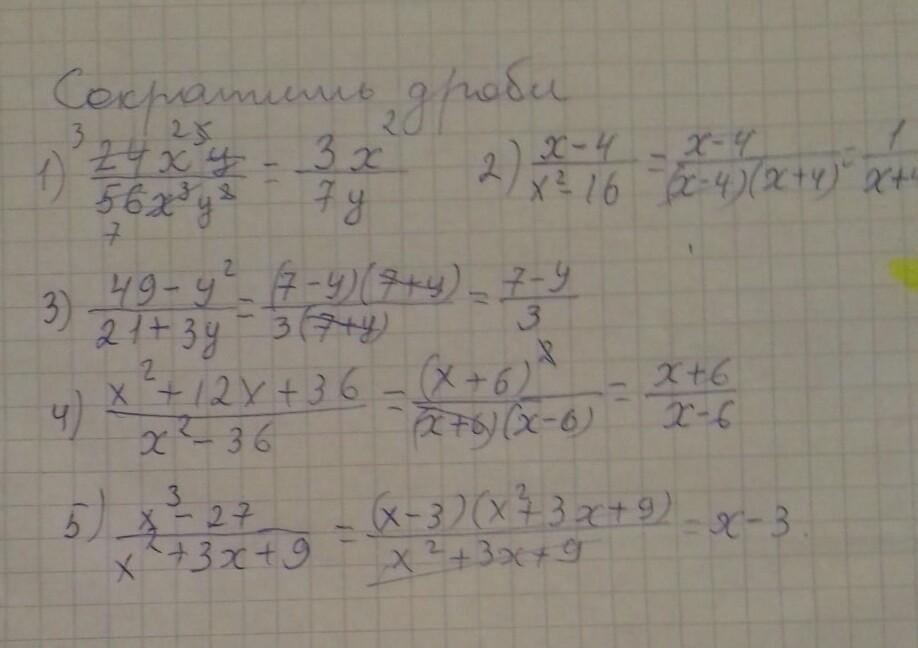 Сократить дроби
1) 24x⁵y / 56x³y² = 3x² / 7y 2) x-4 / x²-16 = x-4 / (x-4)(x+4) = 1 / x+4
3) 49-y² / 21+3y = (7-y)(7+y) / 3(7+y) = 7-y / 3
4) x²+12x+36 / x²-36 = (x+6)² / (x+6)(x-6) = x+6 / x-6
5) x³-27 / x²+3x+9 = (x-3)(x²+3x+9) / x²+3x+9 = x-3.